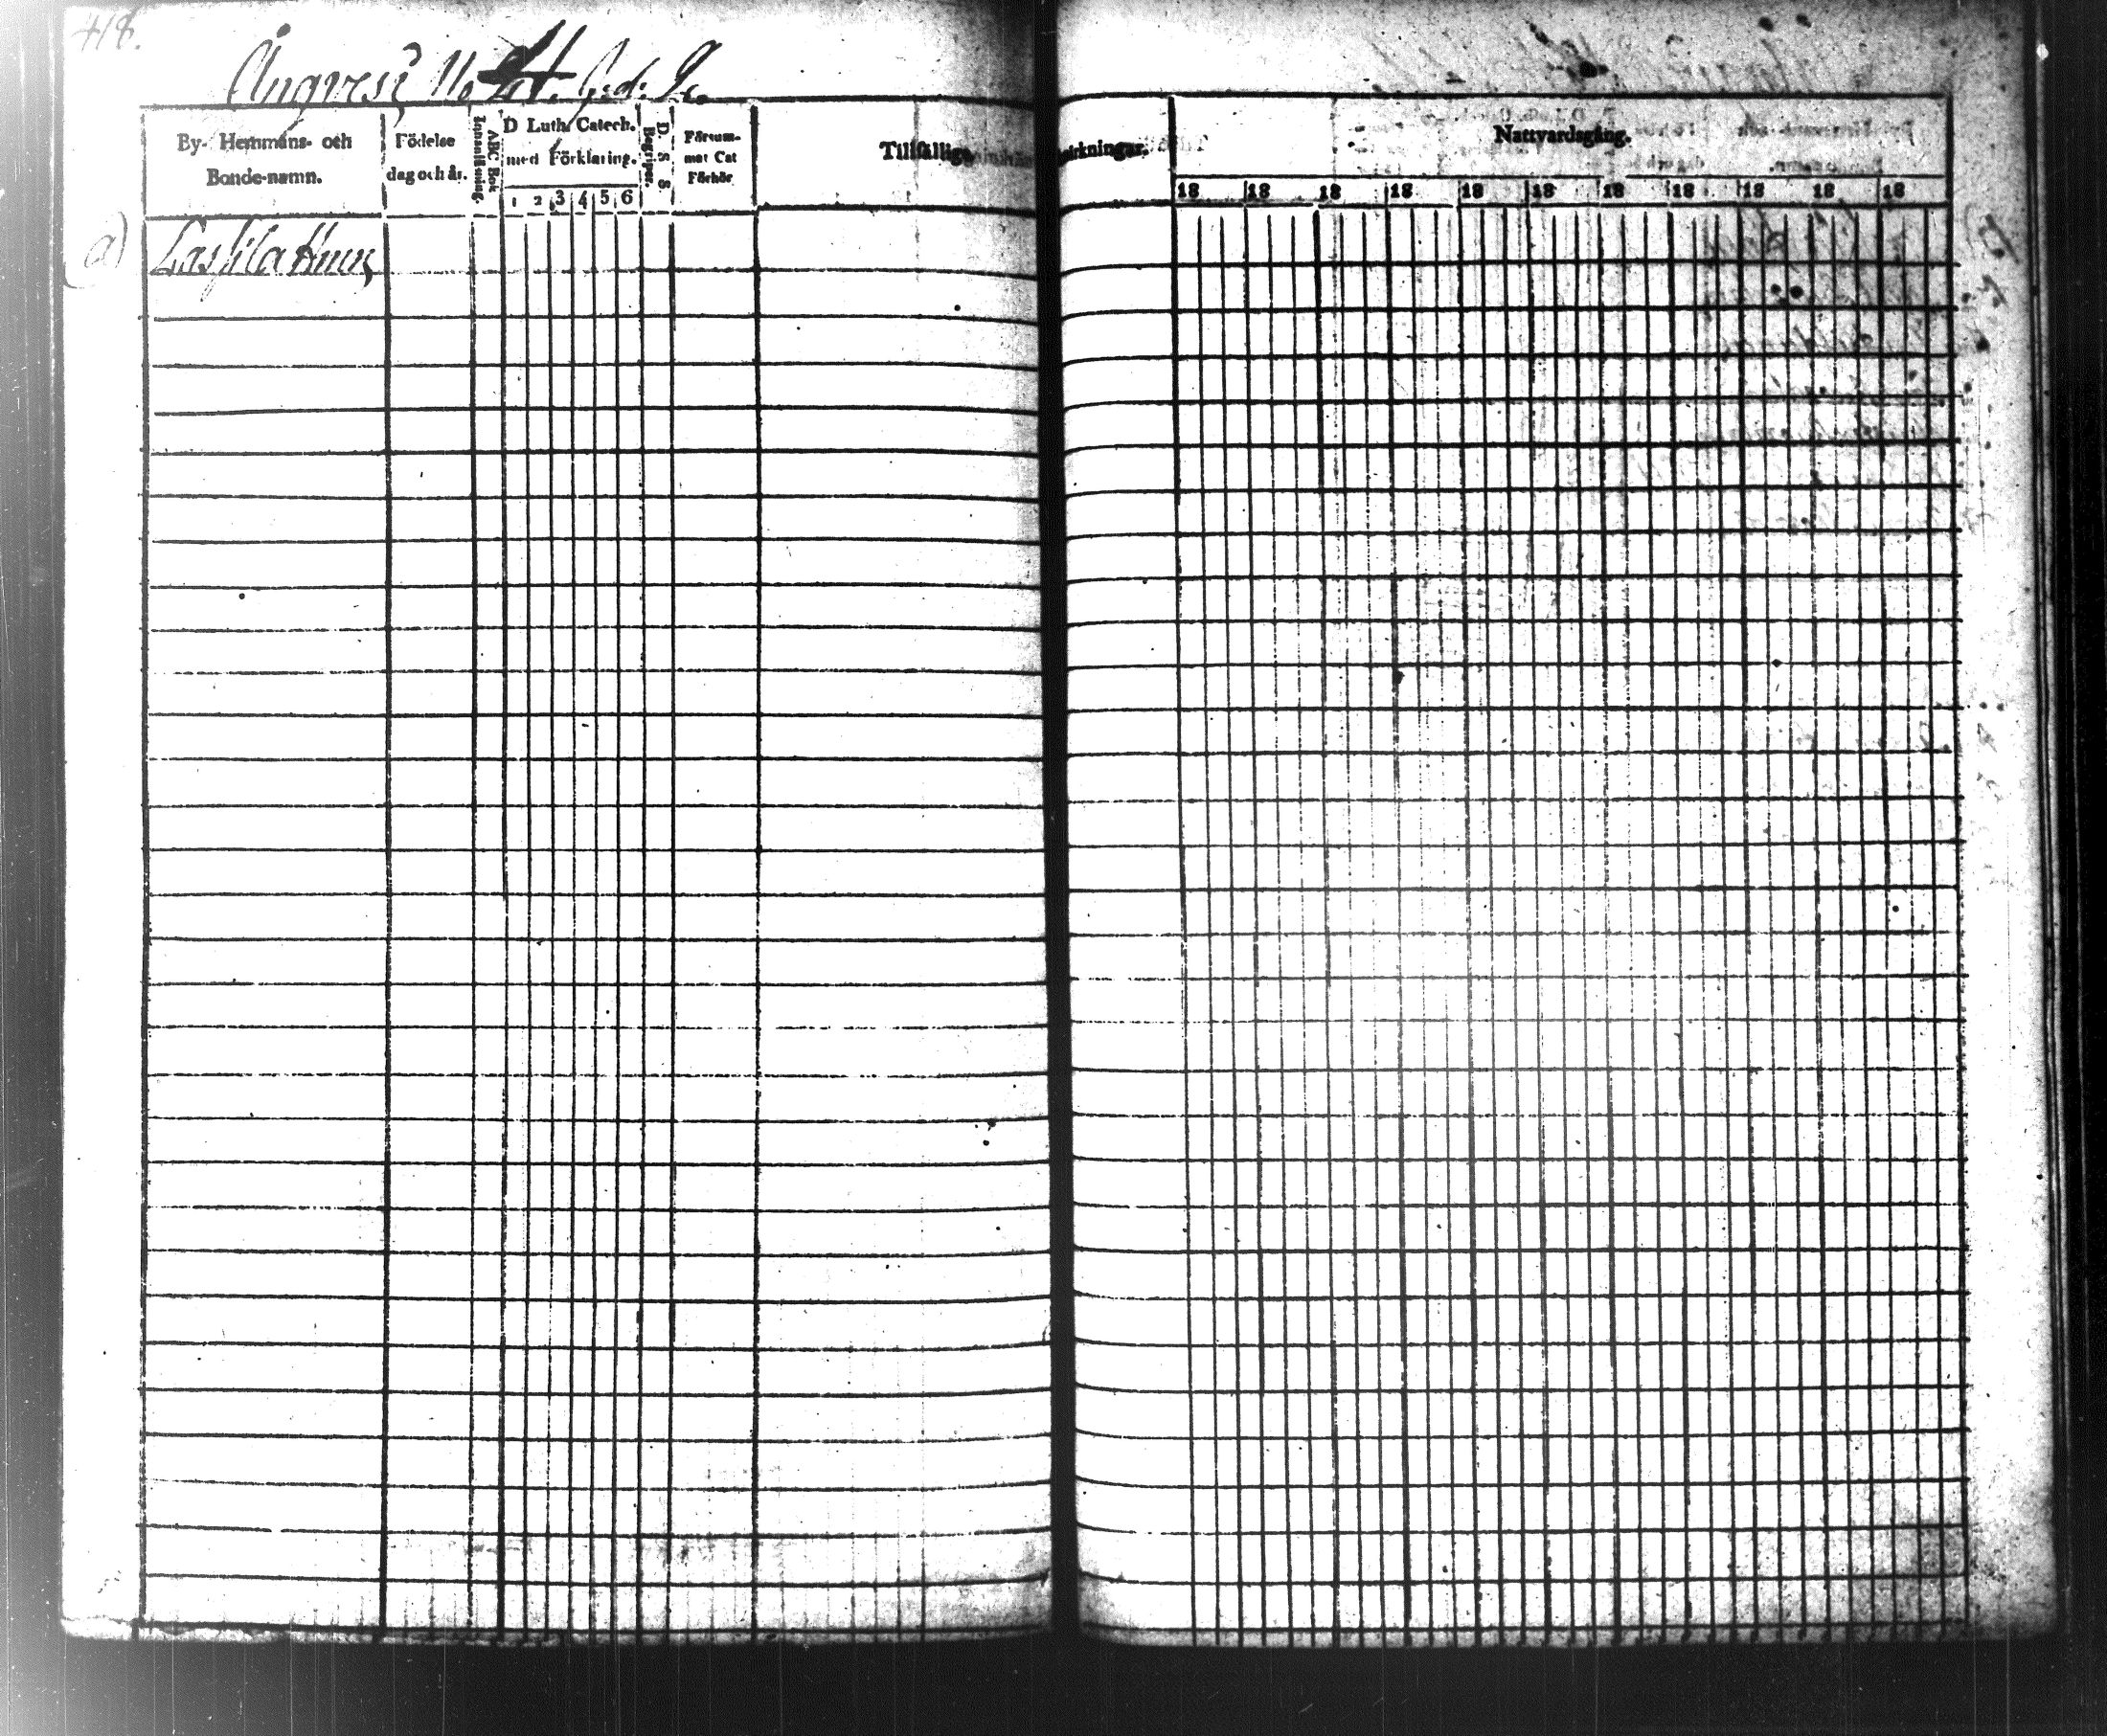 418.
Ångvesi No 4.
By- Hemmans- och
Bonde-namn.
Födelse
dag och år.
ABC Bok
Innanläsning.
D Luth. Catech.
med Förklaring.
1 2 3 4 5 6
D. S. S
Begriper.
Försum-
mat Cat
Förhör
Tillfälliga
märkningar.
Nattvardsgång.
18 18 18 18 18 18 18 18 18 18 18
a) Lassila Hem